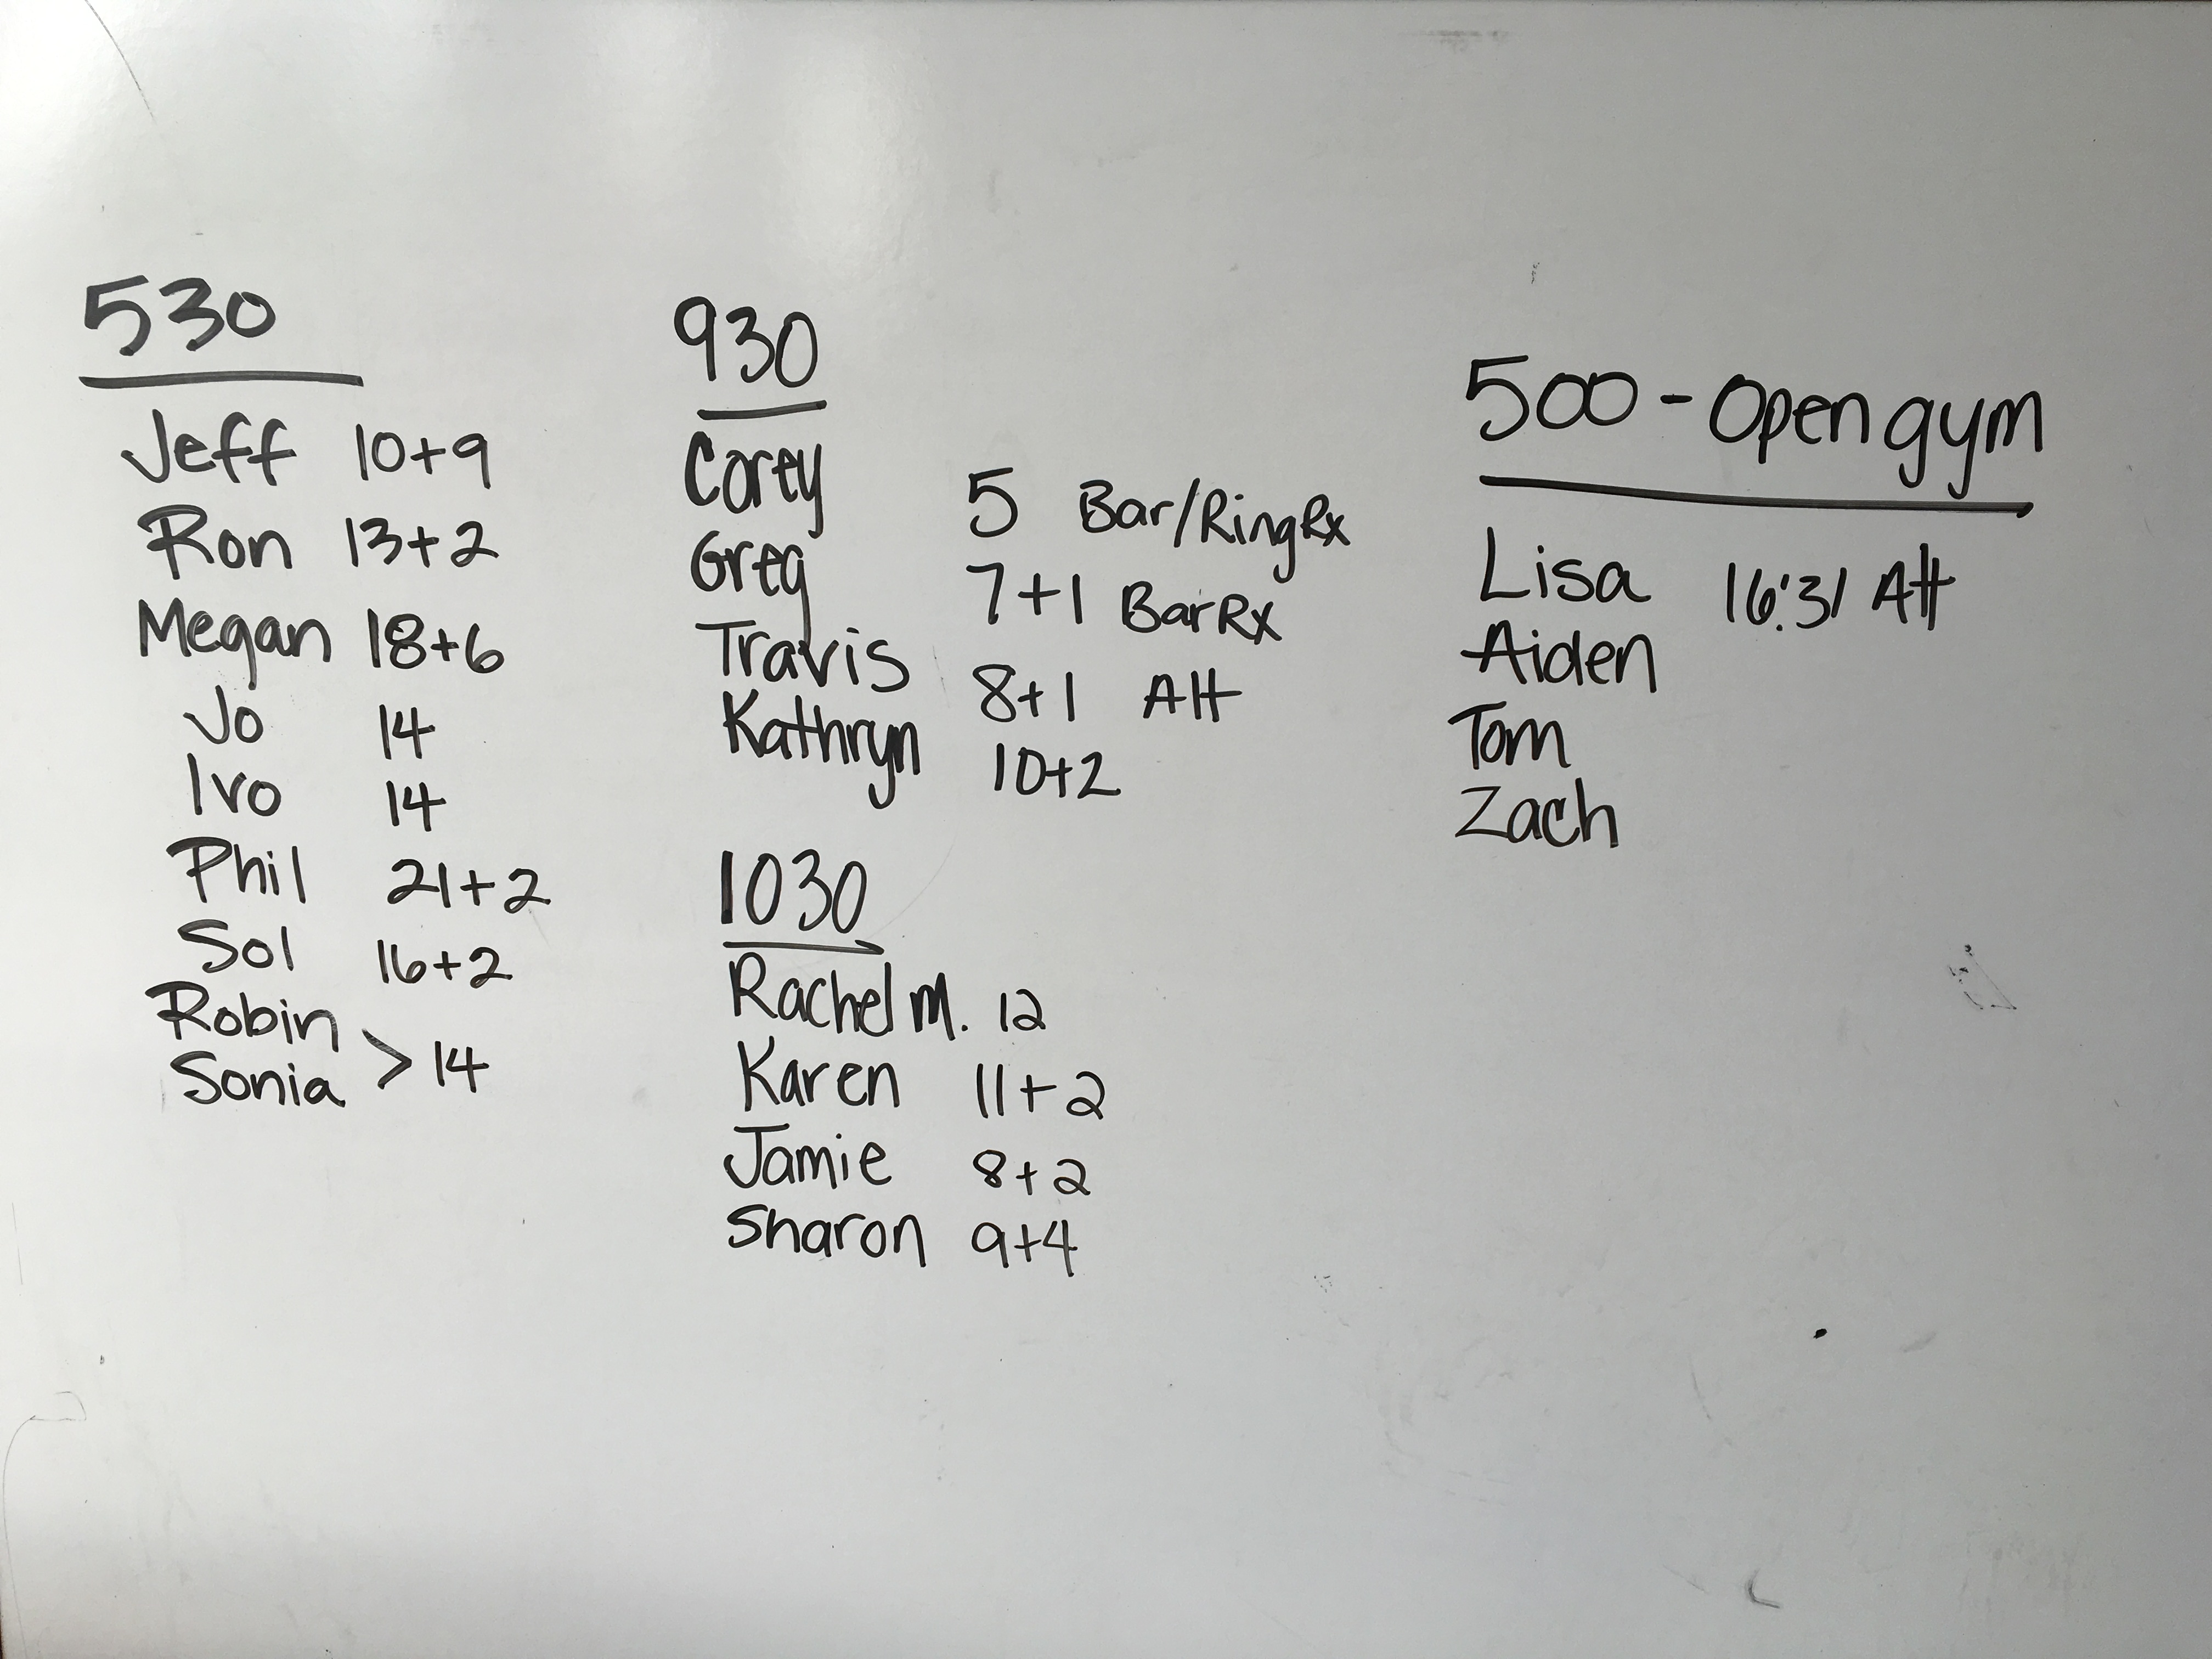 530
Jeff 10+9
Ron 13+2
Megan 18+6
Jo 14
Ivo 14
Phil 21+2
Sol 16+2
Robin
Sonia > 14
930
Corey 5 Bar/Ring Rx
Greg 7+1 Bar Rx
Travis 8+1 Alt
Kathryn 10+2
1030
Rachel M. 12
Karen 11+2
Jamie 8+2
Sharon 9+4
500 - Open gym
Lisa 16:31 Alt
Aiden
Tom
Zach